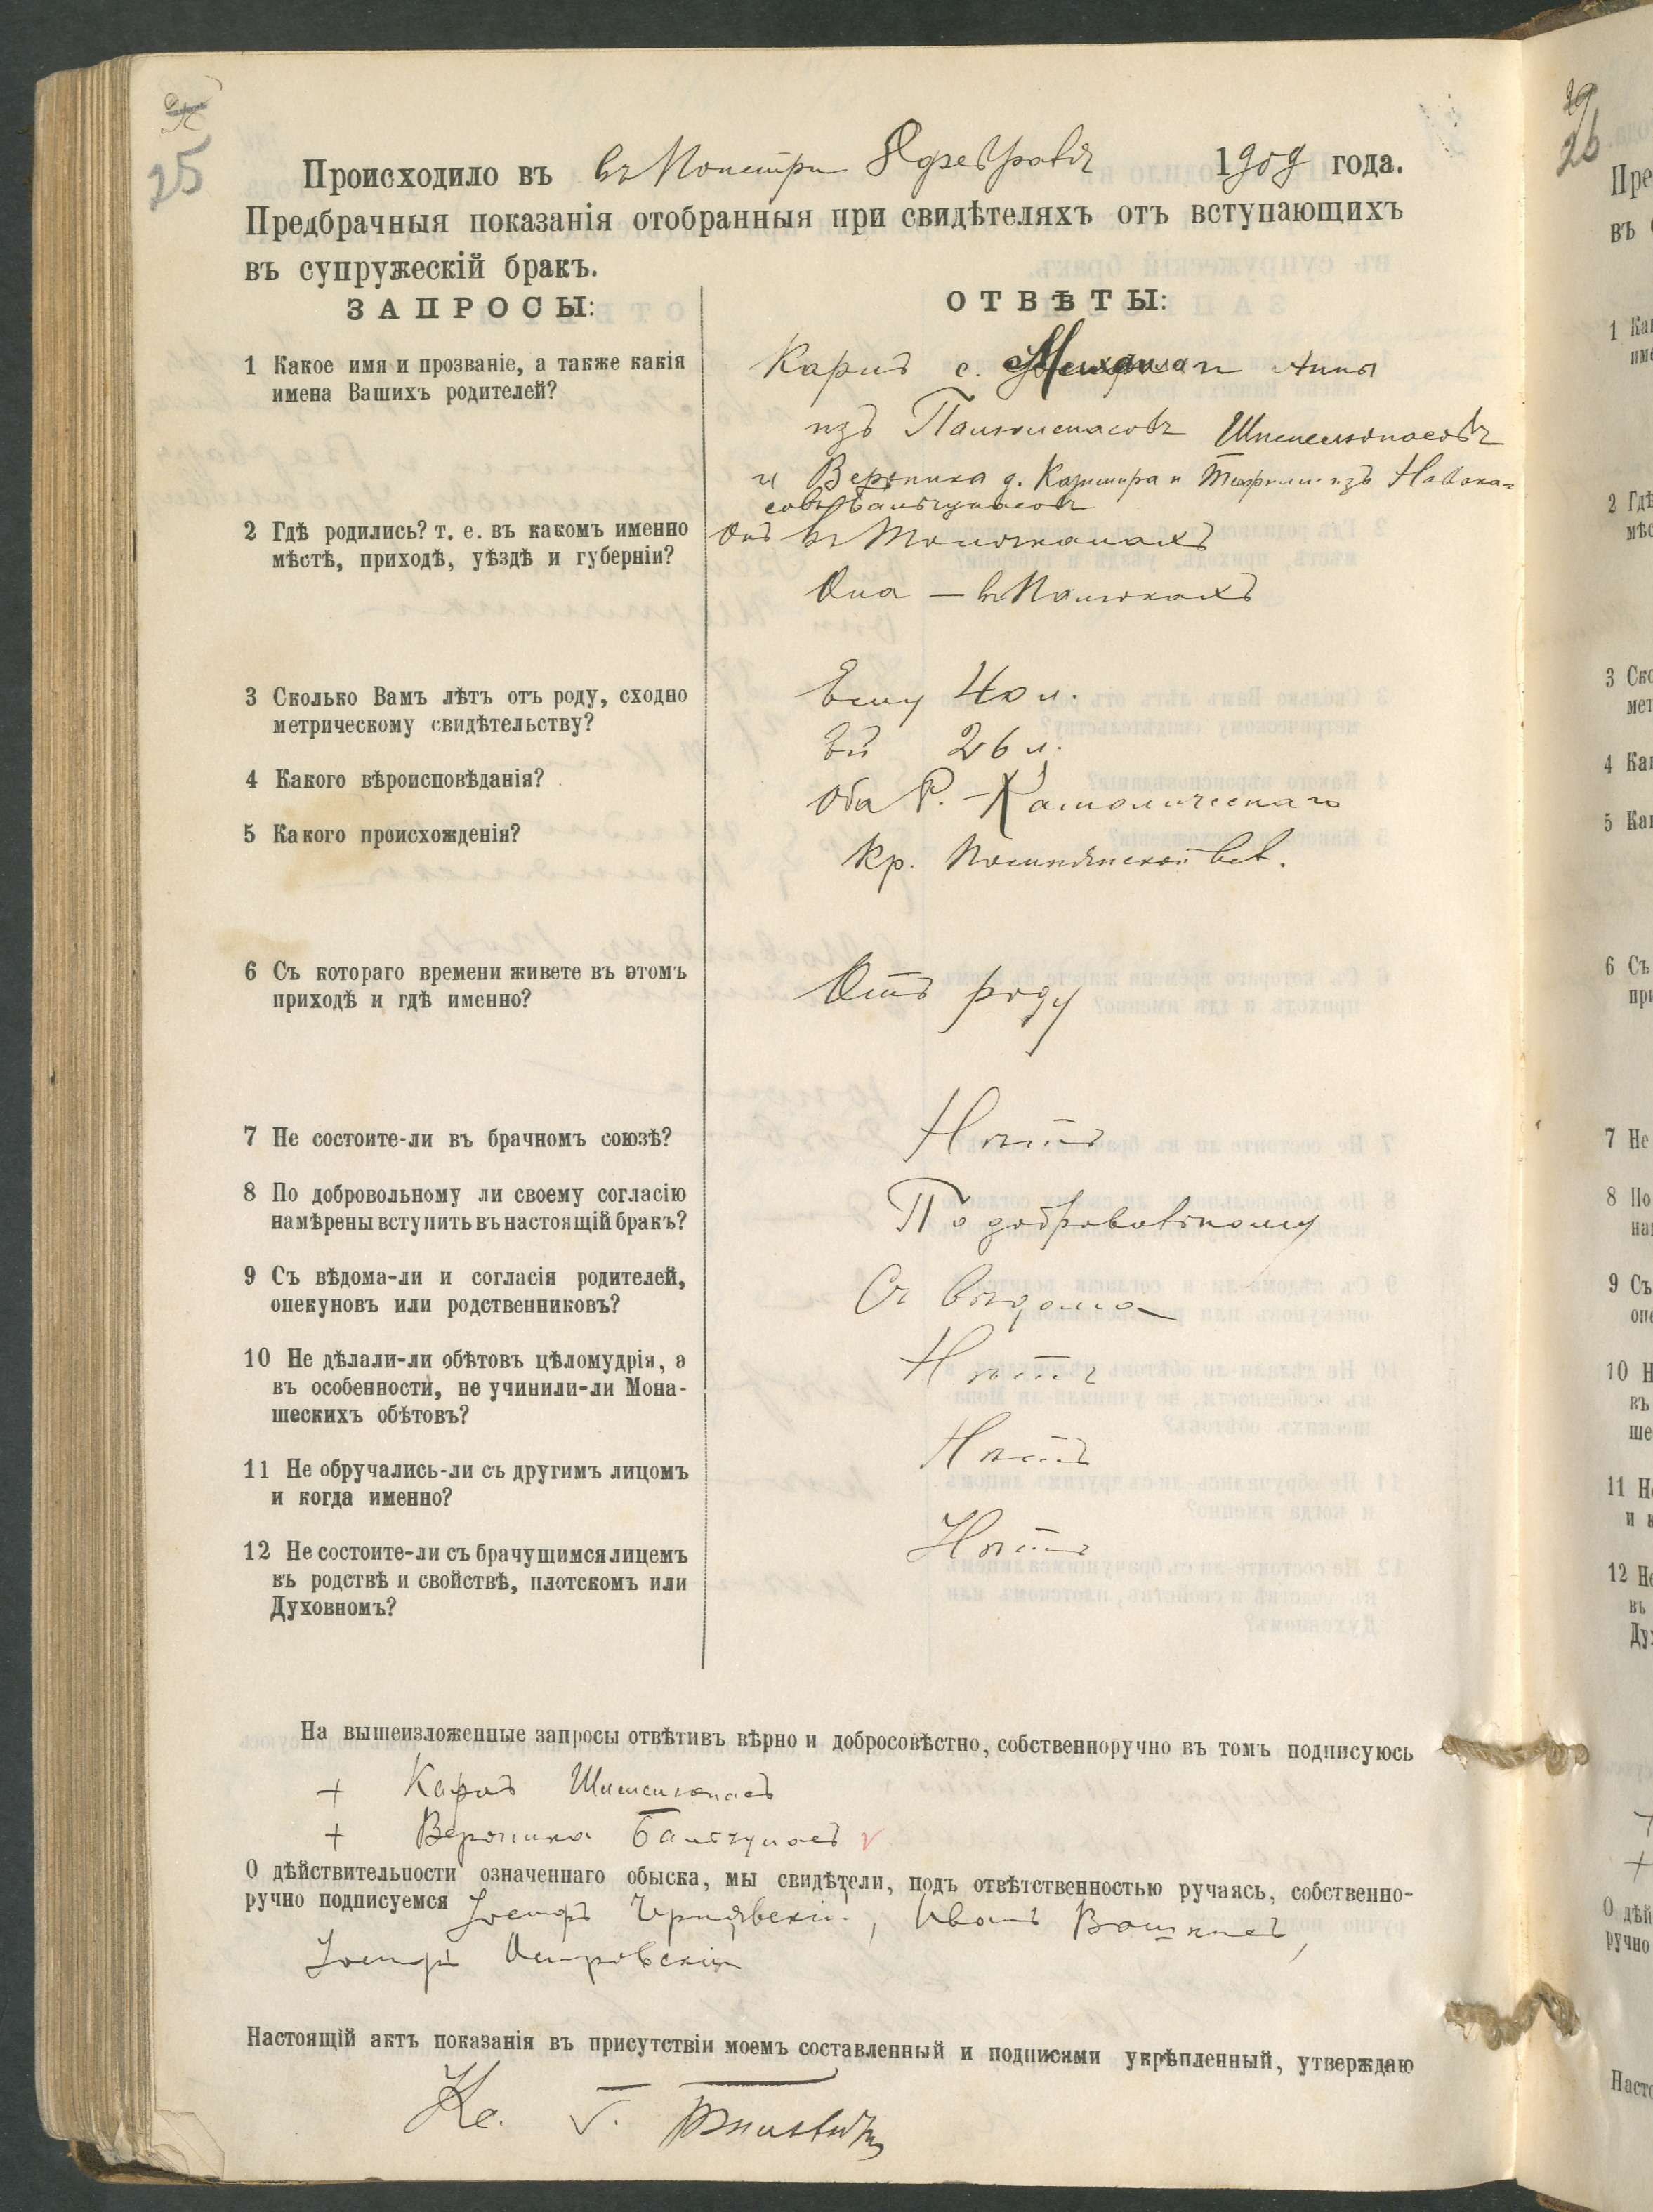 25
Происходило въ въ 8 февраля 1909 года.
Предбрачныя показанія отобранныя при свидѣтеляхъ отъ вступающихъ
въ супружескій бракъ.
ЗАПРОСЫ:
ОТВѢТЫ:
1 Какое имя и прозваніе, а также какія
имена Вашихъ родителей?
с. и Анны
изъ
и Вероника д. Казимира и Теофилии изъ
2 Гдѣ родились? т. е. въ какомъ именно
мѣстѣ, приходѣ, уѣздѣ и губерніи?
Онъ въ
Она — въ
3 Сколько Вамъ лѣтъ отъ роду, сходно
метрическому свидѣтельству?
Ему 40 л.
Ей 26 л.
4 Какого вѣроисповѣданія?
Оба Р.-Католическаго
5 Какого происхожденія?
Кр. вол.
6 Съ котораго времени живете въ этомъ
приходѣ и гдѣ именно?
Отъ роду
7 Не состоите-ли въ брачномъ союзѣ?
Нѣтъ
8 По добровольному ли своему согласію
намѣрены вступить въ настоящій бракъ?
По добровольному
9 Съ вѣдома-ли и согласія родителей,
опекуновъ или родственниковъ?
Съ вѣдома
10 Не дѣлали-ли обѣтовъ цѣломудрія, а
въ особенности, не учинили-ли Мона-
шескихъ обѣтовъ?
Нѣтъ
11 Не обручались-ли съ другимъ лицомъ
и когда именно?
Нѣтъ
12 Не состоите-ли съ брачущимся лицемъ
въ родствѣ и свойствѣ, плотскомъ или
Духовномъ?
Нѣтъ
На вышеизложенные запросы отвѣтивъ вѣрно и добросовѣстно, собственноручно въ томъ подписуюсь
+
+ Вероника Бальчунасъ
О дѣйствительности означеннаго обыска, мы свидѣтели, подъ отвѣтственностью ручаясь, собственно-
ручно подписуемся Іосифъ Чернявскій, Иванъ
Іосифъ Островскій
Настоящій актъ показанія въ присутствіи моемъ составленный и подписями укрѣпленный, утверждаю
Кс.
26